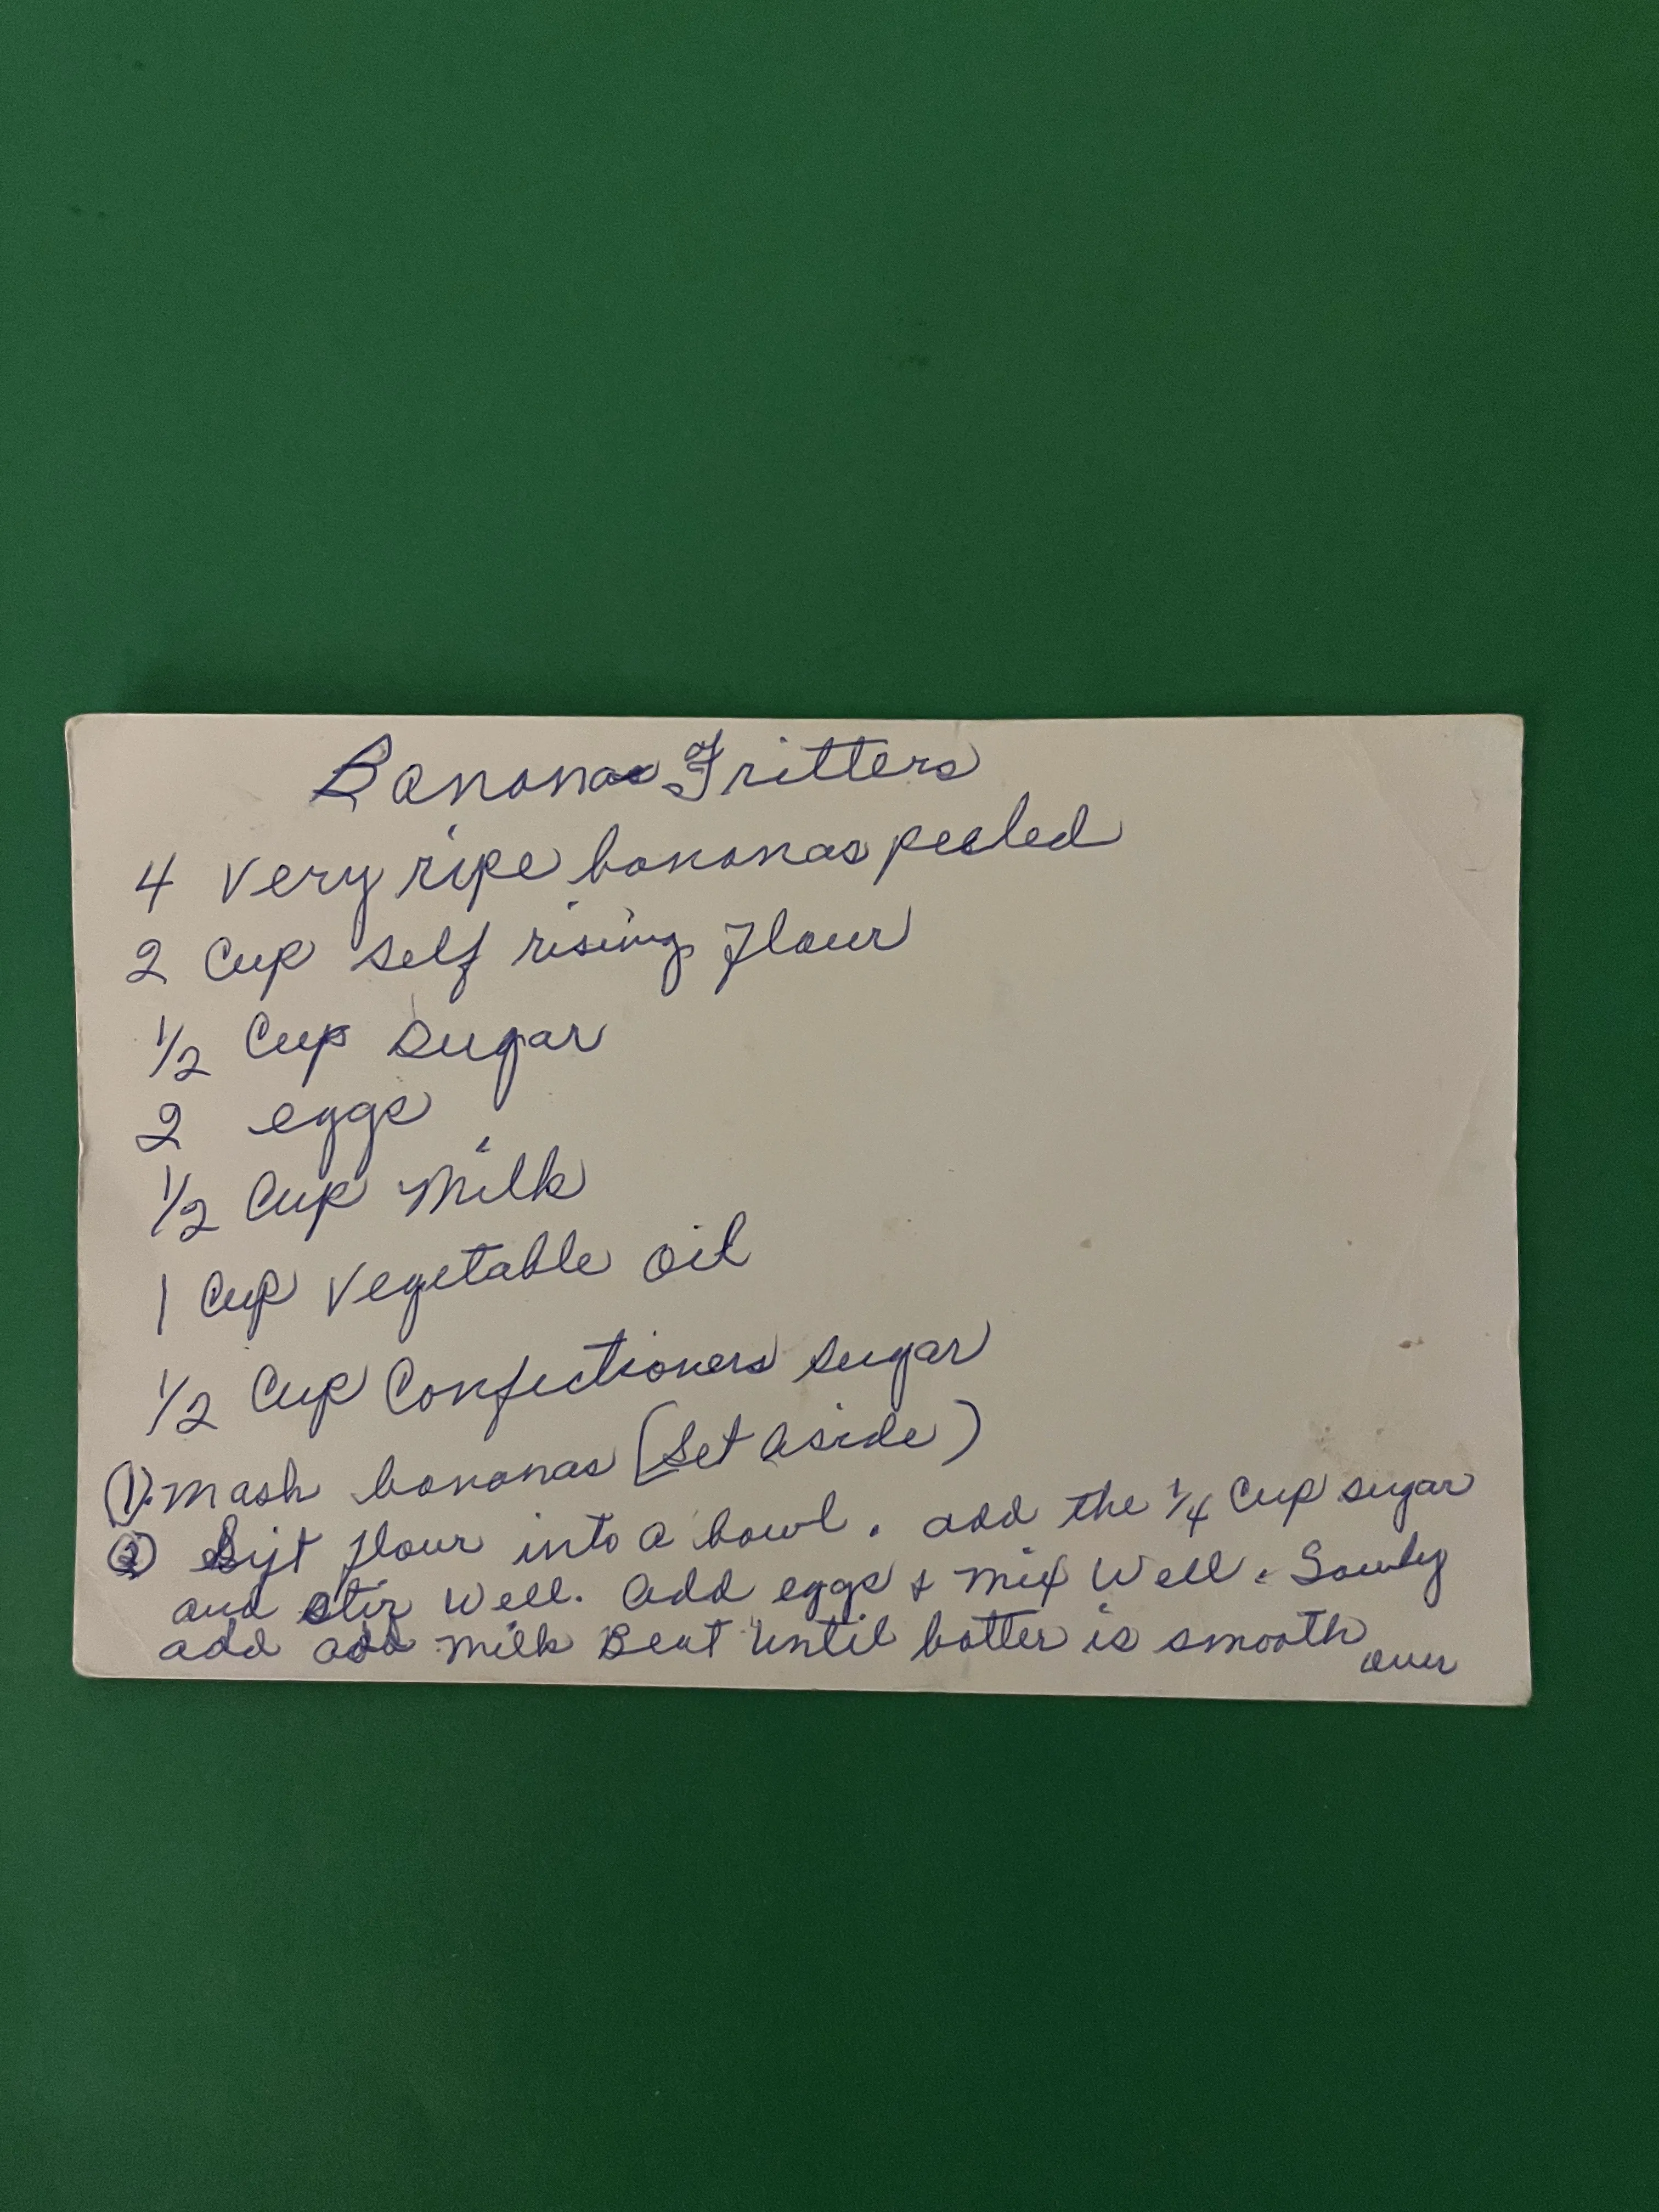 Bananas Fritters
4 Very ripe bananas peeled
2 Cup self rising flour
1/2 Cup sugar
2 eggs
1/2 Cup Milk
1 Cup Vegetable Oil
1/2 Cup Confectioners sugar
(1). Mash bananas (Set Aside)
(2) Sift flour into a bowl. add the 1/4 Cup sugar
and stir well. Add eggs & mix Well. Sowly
add add milk Beat until batter is smooth
over